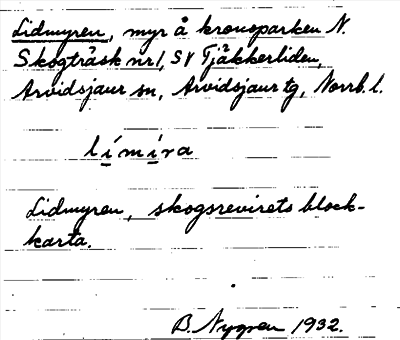 Lidmyren, myr å kronoparken N.
Skogträsk nr 1, SV Tjäkkerliden,
Arvidsjaur sn, Arvidsjaur tg, Norrb. l.
límíra
Lidmyren, skogsrevirets block-
karta.
B. Nygren 1932.